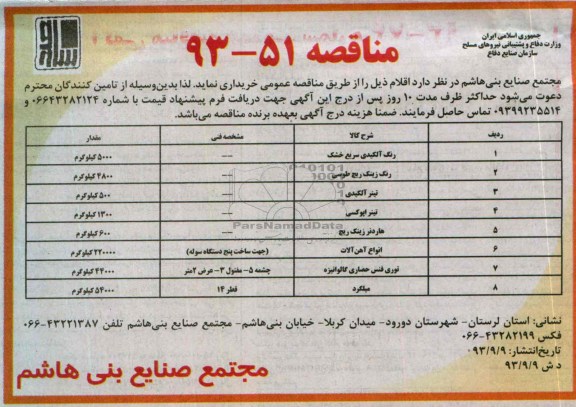 جمهوری اسلامی ایران
وزارت دفاع و پشتیبانی نیروهای مسلح
سازمان صنایع دفاع
مناقصه ۵۱-۹۳
مجتمع صنایع بنی‌هاشم در نظر دارد اقلام ذیل را از طریق مناقصه عمومی خریداری نماید. لذا بدین‌وسیله از تامین کنندگان محترم
دعوت می‌شود حداکثر ظرف مدت ۱۰ روز پس از درج این آگهی جهت دریافت فرم پیشنهاد قیمت با شماره ۰۶۶۴۳۲۸۲۱۲۴ و
۰۹۳۹۹۲۳۵۵۱۴ تماس حاصل فرمایند. ضمنا هزینه درج آگهی بعهده برنده مناقصه می‌باشد.
ردیف شرح کالا مشخصه فنی مقدار
۱ رنگ آلکیدی سریع خشک --- ۵۰۰۰ کیلوگرم
۲ رنگ زینک ریچ طوسی --- ۴۸۰۰ کیلوگرم
۳ تینر آلکیدی --- ۵۰۰ کیلوگرم
۴ تینر اپوکسی --- ۱۳۰۰ کیلوگرم
۵ هاردنر زینک ریچ --- ۶۰۰ کیلوگرم
۶ انواع آهن‌آلات (جهت ساخت پنج دستگاه سوله) ۲۲۰۰۰۰ کیلوگرم
۷ توری فنس حصاری گالوانیزه چشمه ۵- مفتول ۳- عرض ۲متر ۲۲۰۰۰ کیلوگرم
۸ میلگرد قطر ۱۴ ۵۴۰۰۰ کیلوگرم
ParsNamadData
نشانی: استان لرستان- شهرستان دورود- میدان کربلا- خیابان بنی‌هاشم- مجتمع صنایع بنی‌هاشم تلفن ۴۳۲۲۱۳۸۷-۰۶۶
فکس ۴۳۲۸۲۱۹۹-۰۶۶
تاریخ‌انتشار: ۹۳/۹/۹
د ش ۹۳/۹/۹
مجتمع صنایع بنی هاشم